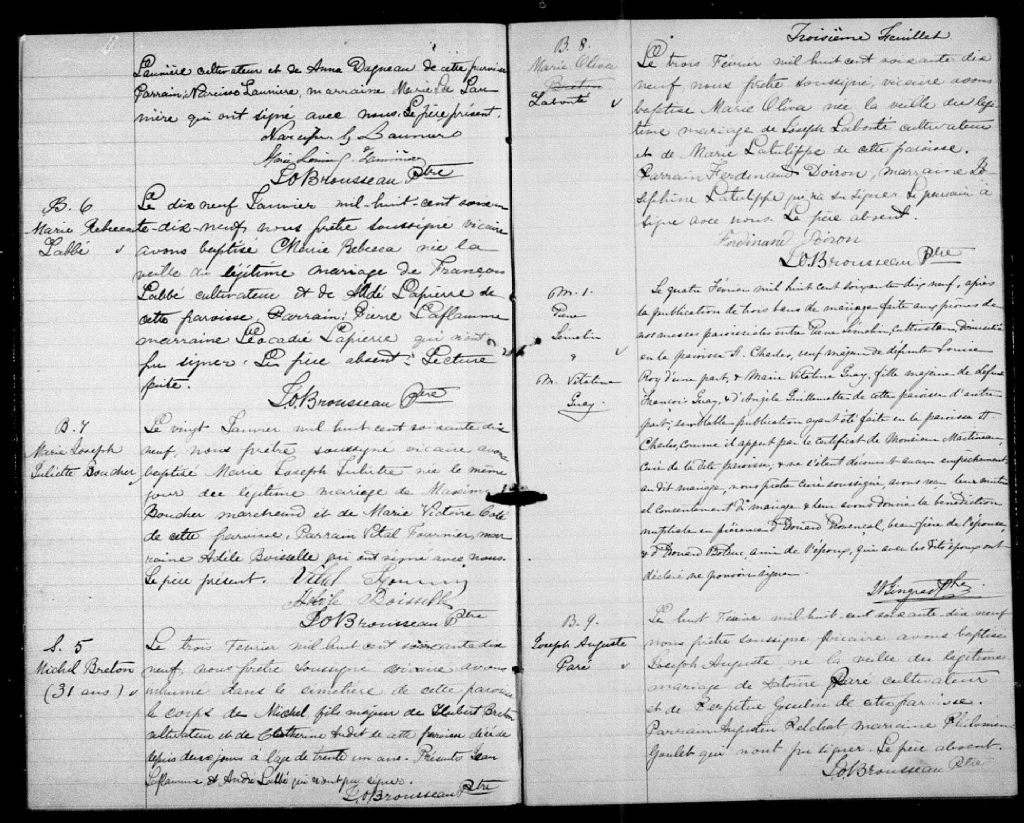 Laumière cultivateur et de Anna Dagneau de cette paroisse
Parrain; Narcisse Laumière, marraine Marie Lse Lau-
mière qui ont signé avec nous. Le père présent.
LOBrousseau Ptre
B. 6
Marie Rebecca
Labbé
Le dix neuf Janvier mil-huit-cent soixan
te-dix-neuf, nous prêtre soussigné vicaire
avons baptisé Marie Rebecca née la
veille du légitime mariage de François
Labbé cultivateur et de Lapierre de
cette paroisse. Parrain: Pierre Laflamme
marraine Léocadie Lapierre qui n'ont
pu signer. Le père absent. Lecture
faite.
LO.Brousseau Ptre
B. 7
Marie Joseph
Juliette Boucher
Le vingt Janvier mil huit cent soixante dix
neuf, nous prêtre soussigné vicaire avons
baptisé Marie Joseph Juliette née le même
jour du légitime mariage de Maxime
Boucher marchand et de Marie Victoire Coté
de cette paroisse. Parrain Vital Fournier, mar
raine Adèle Boisselle qui ont signé avec nous.
Le père présent. Vital Fournier
Adèle Boisselle
LOBrousseau Ptre
S. 5
Michel Breton
(31 ans)
Le trois Fevrier mil huit cent soixante dix
neuf, nous prêtre soussigné vicaire avons
inhumé dans le cimetière de cette paroisse
le corps de Michel, fils majeur de Hubert Breton
cultivateur et de Catherine Audet de cette paroisse décédé
depuis deux jours à l'age de trente un ans. Présents Jean
Laflamme et André Labbé qui n'ont pu signer.
LOBrousseau Ptre
Troisième Feuillet
B. 8.
Marie Oliva
Breton
Labonté
Le trois Février mil huit cent soixante dix
neuf nous prêtre soussigné, vicaire avons
baptisé Marie Oliva née la veille du légi
time mariage de Joseph Labonté cultivateur
et de Marie Latulippe de cette paroisse.
Parrain Ferdinand Doiron, marraine Jo-
sephine Latulippe qui n'a su signer. Le parrain a
signé avec nous. Le père absent.
Ferdinand Doiron
LO.Brousseau Ptre
M. 1.
Pierre
&
M. Vitaline
Guay.
Le quatre Février mil huit cent soixante dix neuf, après
la publication de trois bans de mariage faite aux prônes de
nos messes paroissiales entre Pierre cultivateur, domicilié
en la paroisse St. Charles, veuf majeur de défunte Louise
Roy d'une part, & Marie Vitaline Guay, fille majeure de défunt
François Guay, & d'Angèle Guillemette de cette paroisse d'autre
part; semblable publication ayant été faite en la paroisse St
Charles, comme il appert par le certificat de Monsieur Martineau,
curé de la dite paroisse, & ne s'étant découvert aucun empêchement
au dit mariage, nous prêtre curé soussigné, avons reçu leur mutuel
consentement de mariage & leur avons donné la bénédiction
nuptiale en présence d'Edouard Provençal, beau frère de l'épouse
& d'Edouard ami de l'époux, qui avec les dits époux ont
déclaré ne pouvoir signer.
Gingras Ptre
B. 9.
Joseph Auguste
Paré
Le huit Février mil huit cent soixante-dix neuf
nous prêtre soussigné vicaire avons baptisé
Joseph Auguste né la veille du légitime
mariage de Antoine Paré cultivateur
et de Perpétue Goulin de cette paroisse.
Parrain Augustin Pelchat, marraine Philomène
Goulet qui n'ont pu signer. Le père absent.
LO.Brousseau Ptre